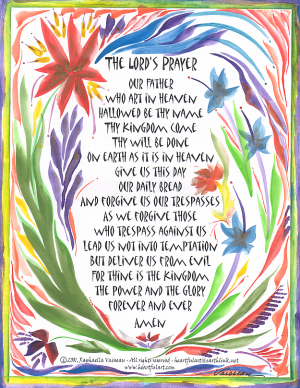 THE LORD'S PRAYER
OUR FATHER
WHO ART IN HEAVEN
HALLOWED BE THY NAME
THY KINGDOM COME
THY WILL BE DONE
ON EARTH AS IT IS IN HEAVEN
GIVE US THIS DAY
OUR DAILY BREAD
AND FORGIVE US OUR TRESPASSES
AS WE FORGIVE THOSE
WHO TRESPASS AGAINST US
LEAD US NOT INTO TEMPTATION
BUT DELIVER US FROM EVIL
FOR THINE IS THE KINGDOM
THE POWER AND THE GLORY
FOREVER AND EVER
AMEN
Raphaella Vaisseau - All rights reserved - heartfulart@earthlink.net
www.heartfulart.com